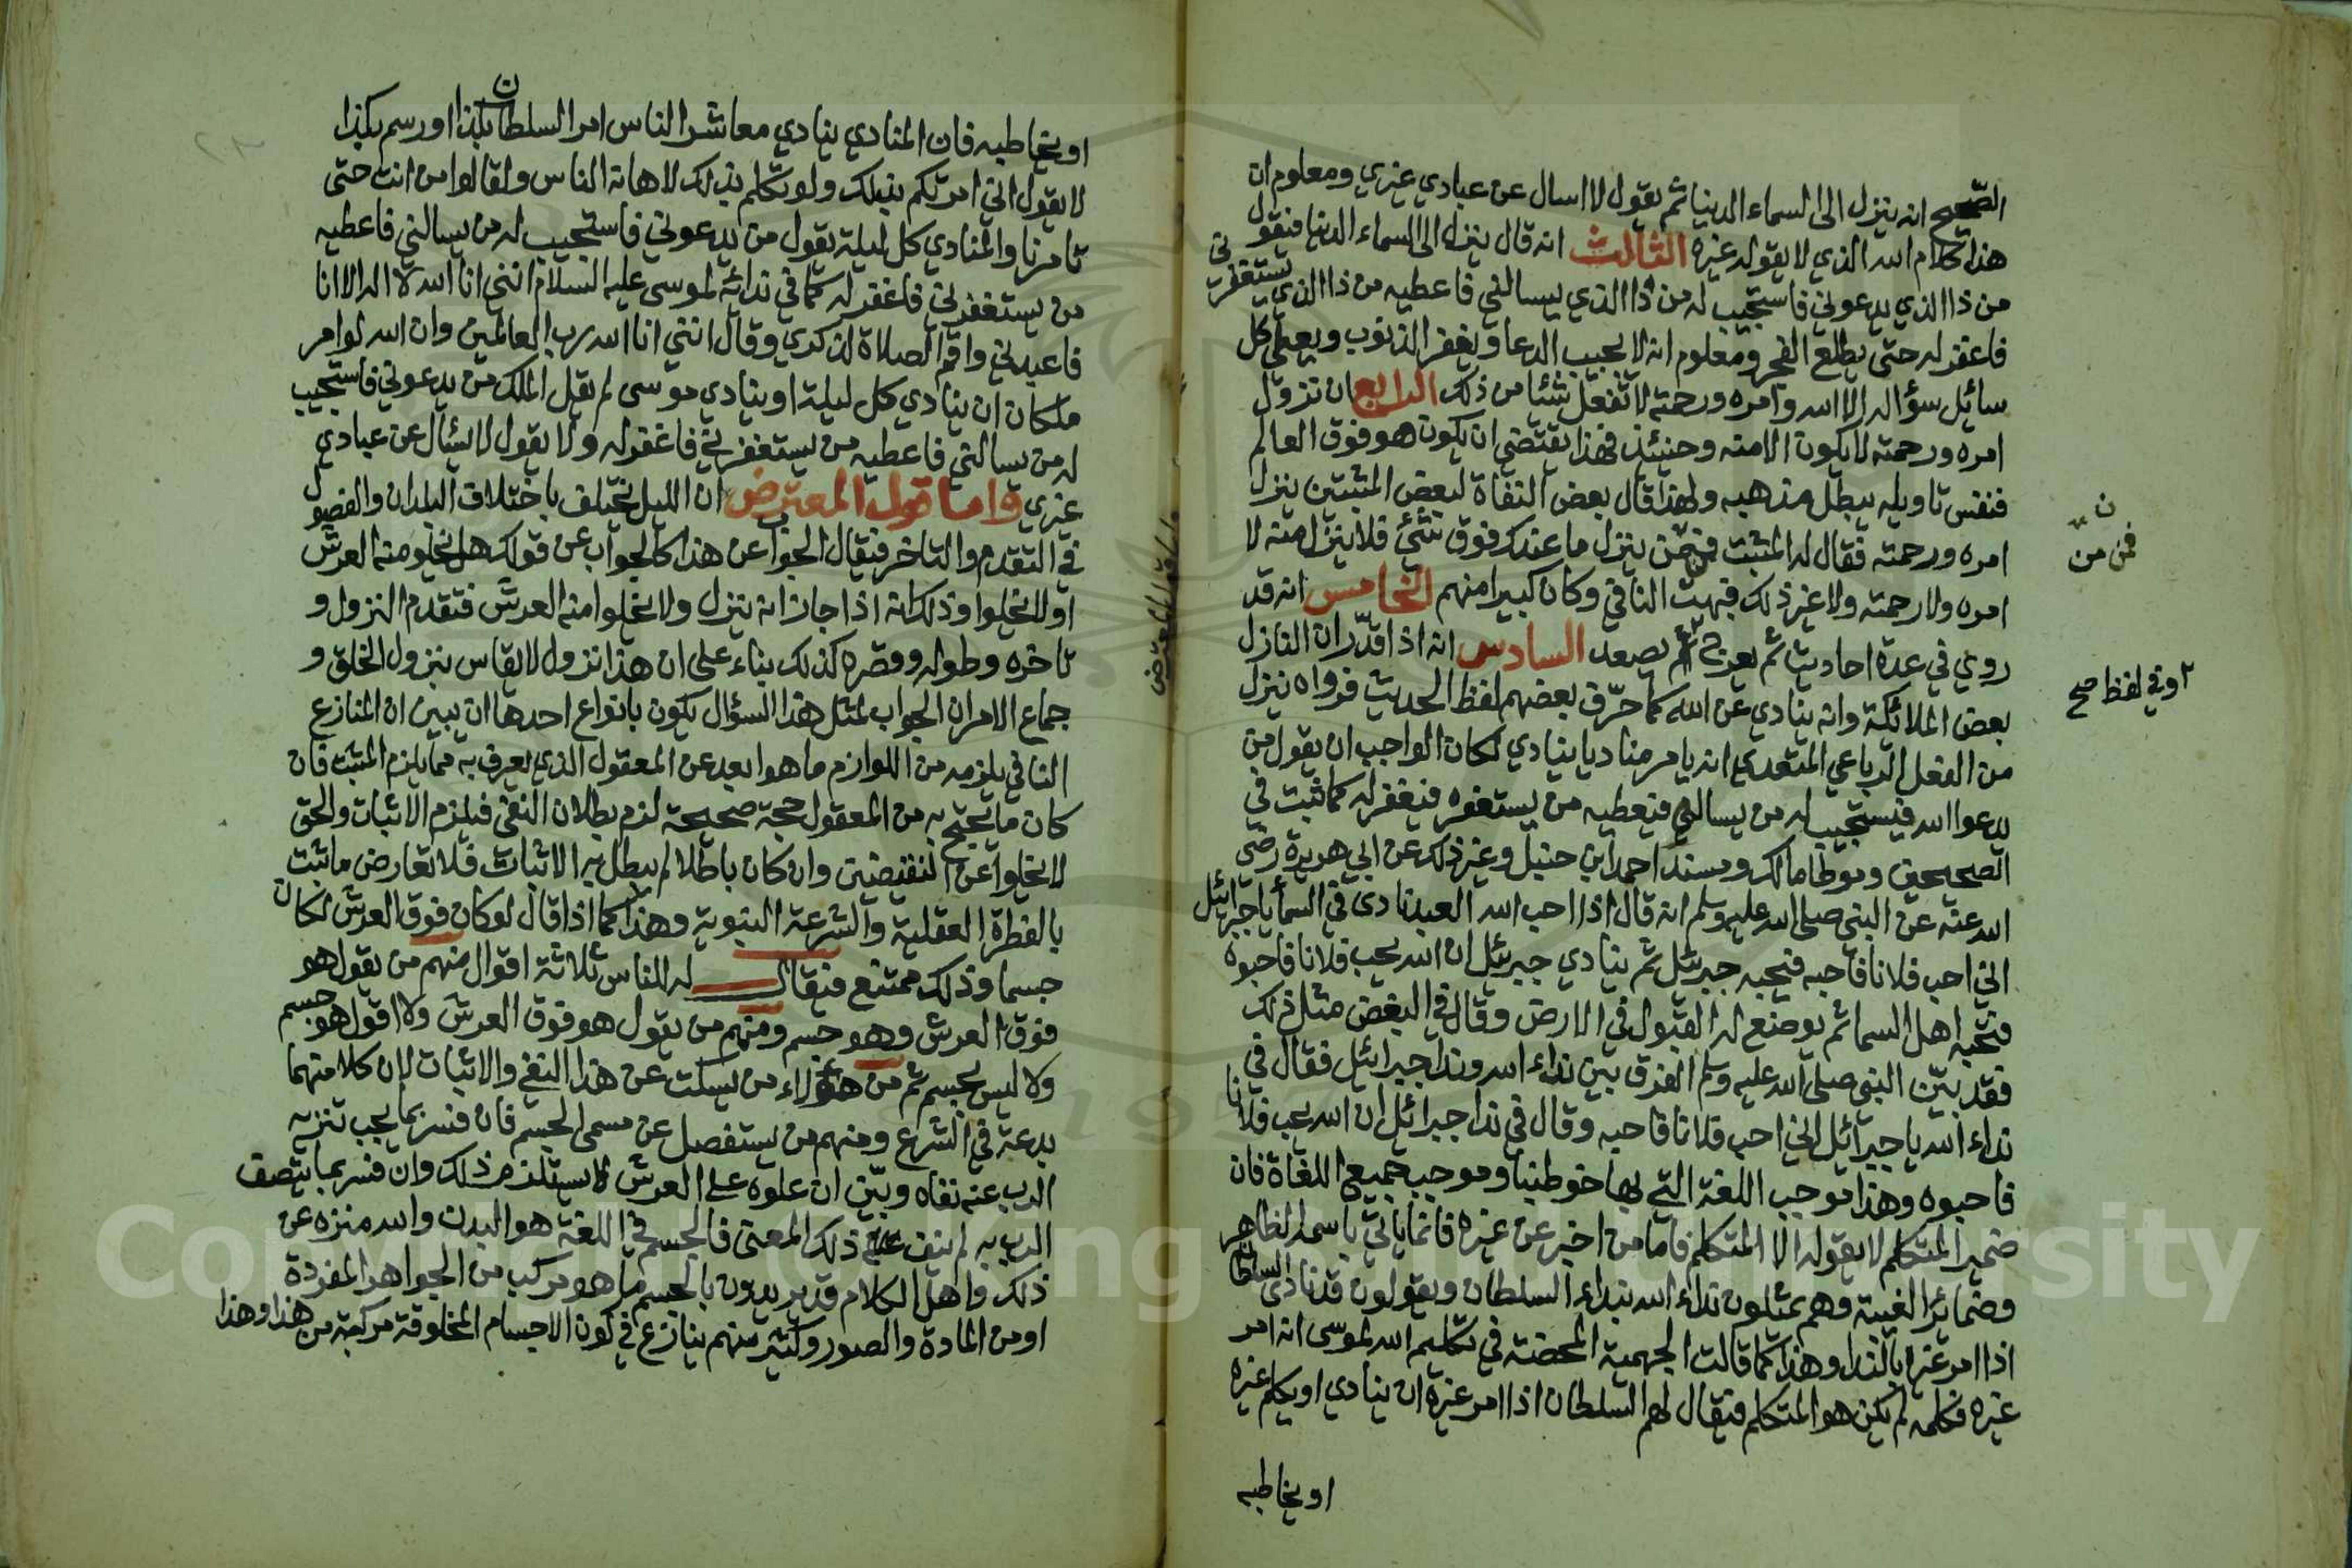 الصحيح انه ينزل الى السماء الدنيا ثم يقول لا اسال عن عبادي غيري ومعلوم ان
هذا كلام الله الذي لا يقوله غيره الثالث انه قال ينزل الى السماء الدنيا فيقول
من ذا الذي يدعوني فاستجيب له من ذا الذي يسالني فاعطيه من ذا الذي يستغفرني
فاغفر له حتى يطلع الفجر ومعلوم انه لا يجيب الدعا ويغفر الذنوب ويعطي كل
سائل سؤاله الا الله وامره ورحمته لا تفعل شيئا من ذلك الرابع ان نزول
امره ورحمته لا يكون الا منه وحينئذ فهذا يقتضي ان يكون هو فوق العالم
فنفس تاويله يبطل مذهبه ولهذا قال بعض النفاة لبعض المثبتين ينزل
امره ورحمته فقال له المثبت فممن ينزل ما عندك فوق شئ فلا ينزل منه لا
امره ولا رحمته ولا غير ذلك فبهت النافي وكان كبيرا منهم الخامس انه قد
روي في عدة احاديث ثم يعرج ثم يصعد السادس انه اذا قدّر ان النازل
بعض الملائكة وانه ينادي عن الله كما حرّف بعضهم لفظ الحديث فرواه ينزل
من الفعل الرباعي المتعدي انه يامر مناديا ينادي لكان الواجب ان يقول من
يدعوا الله فيستجيب له من يسالني فيعطيه من يستغفره فيغفر له كما ثبت في
الصحيحين وموطا مالك ومسند احمد ابن حنبل وغير ذلك عن ابي هريرة رضي
الله عنه عن النبي صلى الله عليه وسلم انه قال اذا احب الله العبد نادى في السما يا جبرائيل
اني احب فلانا فاحبه فيحبه جبرئيل ثم ينادي جبرئيل ان الله يحب فلانا فاحبوه
فيحبه اهل السما ثم يوضع له القبول في الارض وقال في البغض مثل ذلك
فقد بيّن النبي صلى الله عليه وسلم الفرق بين نداء الله وندا جبرائيل فقال في
نداء الله يا جبرائيل اني احب فلانا فاحبه وقال في ندا جبرائيل ان الله يحب فلانا
فاحبوه وهذا موجب اللغة التي بها خوطبنا وموجب جميع اللغاة فان
ضمير المتكلم لا يقوله الا المتكلم فاما من اخبر عن غيره فانما ياتي باسمه الظاهر
وضمائر الغيبة وهم يمثلون نداء الله بنداء السلطان ويقولون قد نادى السلطان
اذا امر غيره بالندا وهذا كما قالت الجهمية المحضة في تكليم الله لموسى انه امر
غيره فكلمه لم يكن هو المتكلم فيقال لهم السلطان اذا امر غيره ان ينادي او يكلم غيره
او يخاطبه
ن
فمن من
٢ وفي لفظ صح
واما قول المعترض
او يخاطبه فان المنادي ينادي معاشر الناس امر السلطان بكذا او رسم بكذا
لا يقول اني امرتكم بذلك ولو تكلم بذلك لاهانه الناس ولقالوا من انت حتى
تامرنا والمنادي كل ليلة يقول من يدعوني فاستجيب له من يسالني فاعطيه
من يستغفرني فاغفر له كما في ندائه لموسى عليه السلام انني انا الله لا اله الا انا
فاعبدني واقم الصلاة لذكري وقال انني انا الله رب العالمين وان الله لو امر
ملكا ان ينادي كل ليلة او ينادي موسى لم يقل الملك من يدعوني فاستجيب
له من يسالني فاعطيه من يستغفرني فاغفر له ولا يقول لا يسئال عن عبادي
غيري واما قول المعترض ان الليل يختلف باختلاف البلدان والفصول
في التقدم والتاخر فيقال الجواب عن هذا كالجواب عن قولك هل يخلو منه العرش
او لا يخلوا وذلك انه اذا جاز انه ينزل ولا يخلوا منه العرش فتقدم النزول و
تاخره وطوله وقصره كذلك بناء على ان هذا نزول لا يقاس بنزول الخلق و
جماع الامر ان الجواب لمثل هذا السؤال يكون بانواع احدها ان يبين ان المنازع
النافي يلزمه من اللوازم ما هو ابعد عن المعقول الذي يعرف به مما يلزم المثبت فان
كان ما يحتج به من المعقول حجة صحيحة لزم بطلان النفي فيلزم الاثبات والحق
لا يخلوا عن النقيضين وان كان باطلا لم يبطل به الاثبات فلا تعارض ما ثبت
بالفطرة العقلية والشرعة النبوية وهذا كما اذا قال لو كان فوق العرش لكان
جسما وذلك ممتنع فيقال له للناس ثلاثة اقوال منهم من يقول هو
فوق العرش وهو جسم ومنهم من يقول هو فوق العرش ولا اقول هو جسم
ولا ليس بجسم ثم من هؤلاء من يسكت عن هذا النفي والاثبات لان كلا منهما
بدعة في الشرع ومنهم من يستفصل عن مسمى الجسم فان فسر بما يجب تنزيه
الرب عنه نفاه وبيّن ان علوه على العرش لا يستلزم ذلك وان فسر بما يتصف
الرب به لم ينف ذلك المعنى فالجسم في اللغة هو البدن والله منزه عن
ذلك واهل الكلام قد يريدون بالجسم ما هو مركب من الجواهر المفردة
او من المادة والصور وكثير منهم ينازع في كون الاجسام المخلوقة مركبة من هذا وهذا